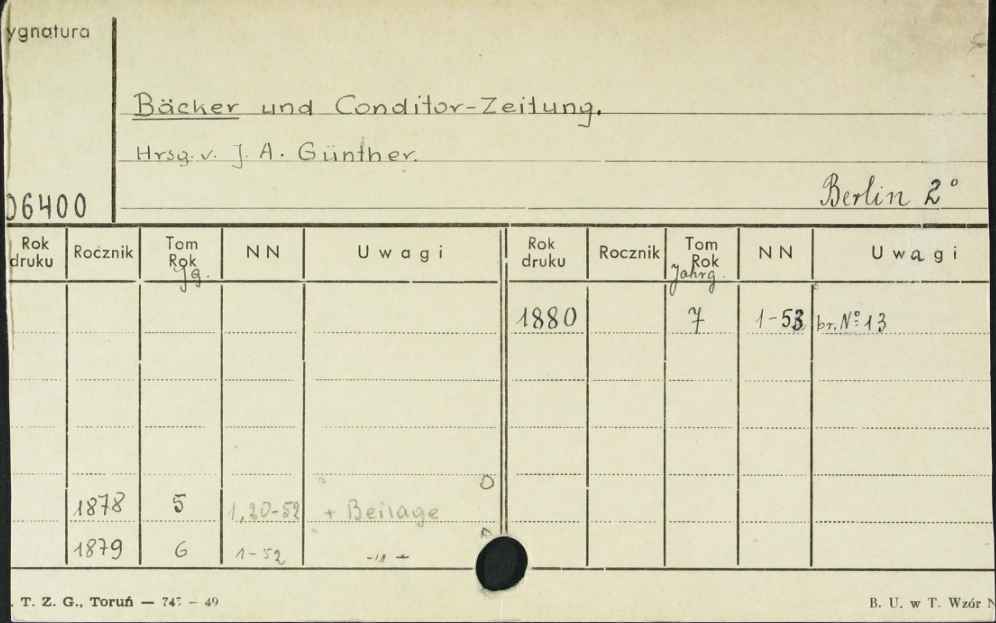 ygnatura
Bäcker und Conditor-Zeitung.
Hrsg. v. J. A. Günther.
06400
Berlin 2°
Rok druku Rocznik Tom Rok Jg. NN Uwagi Rok druku Rocznik Tom Rok Jahrg. NN Uwagi
1880 7 1-53 br. N° 13
1878 5 1,20-52 + Beilage
1879 6 1-52 -"- +
. T. Z. G., Toruń — 747 - 49
B. U. w T. Wzór N